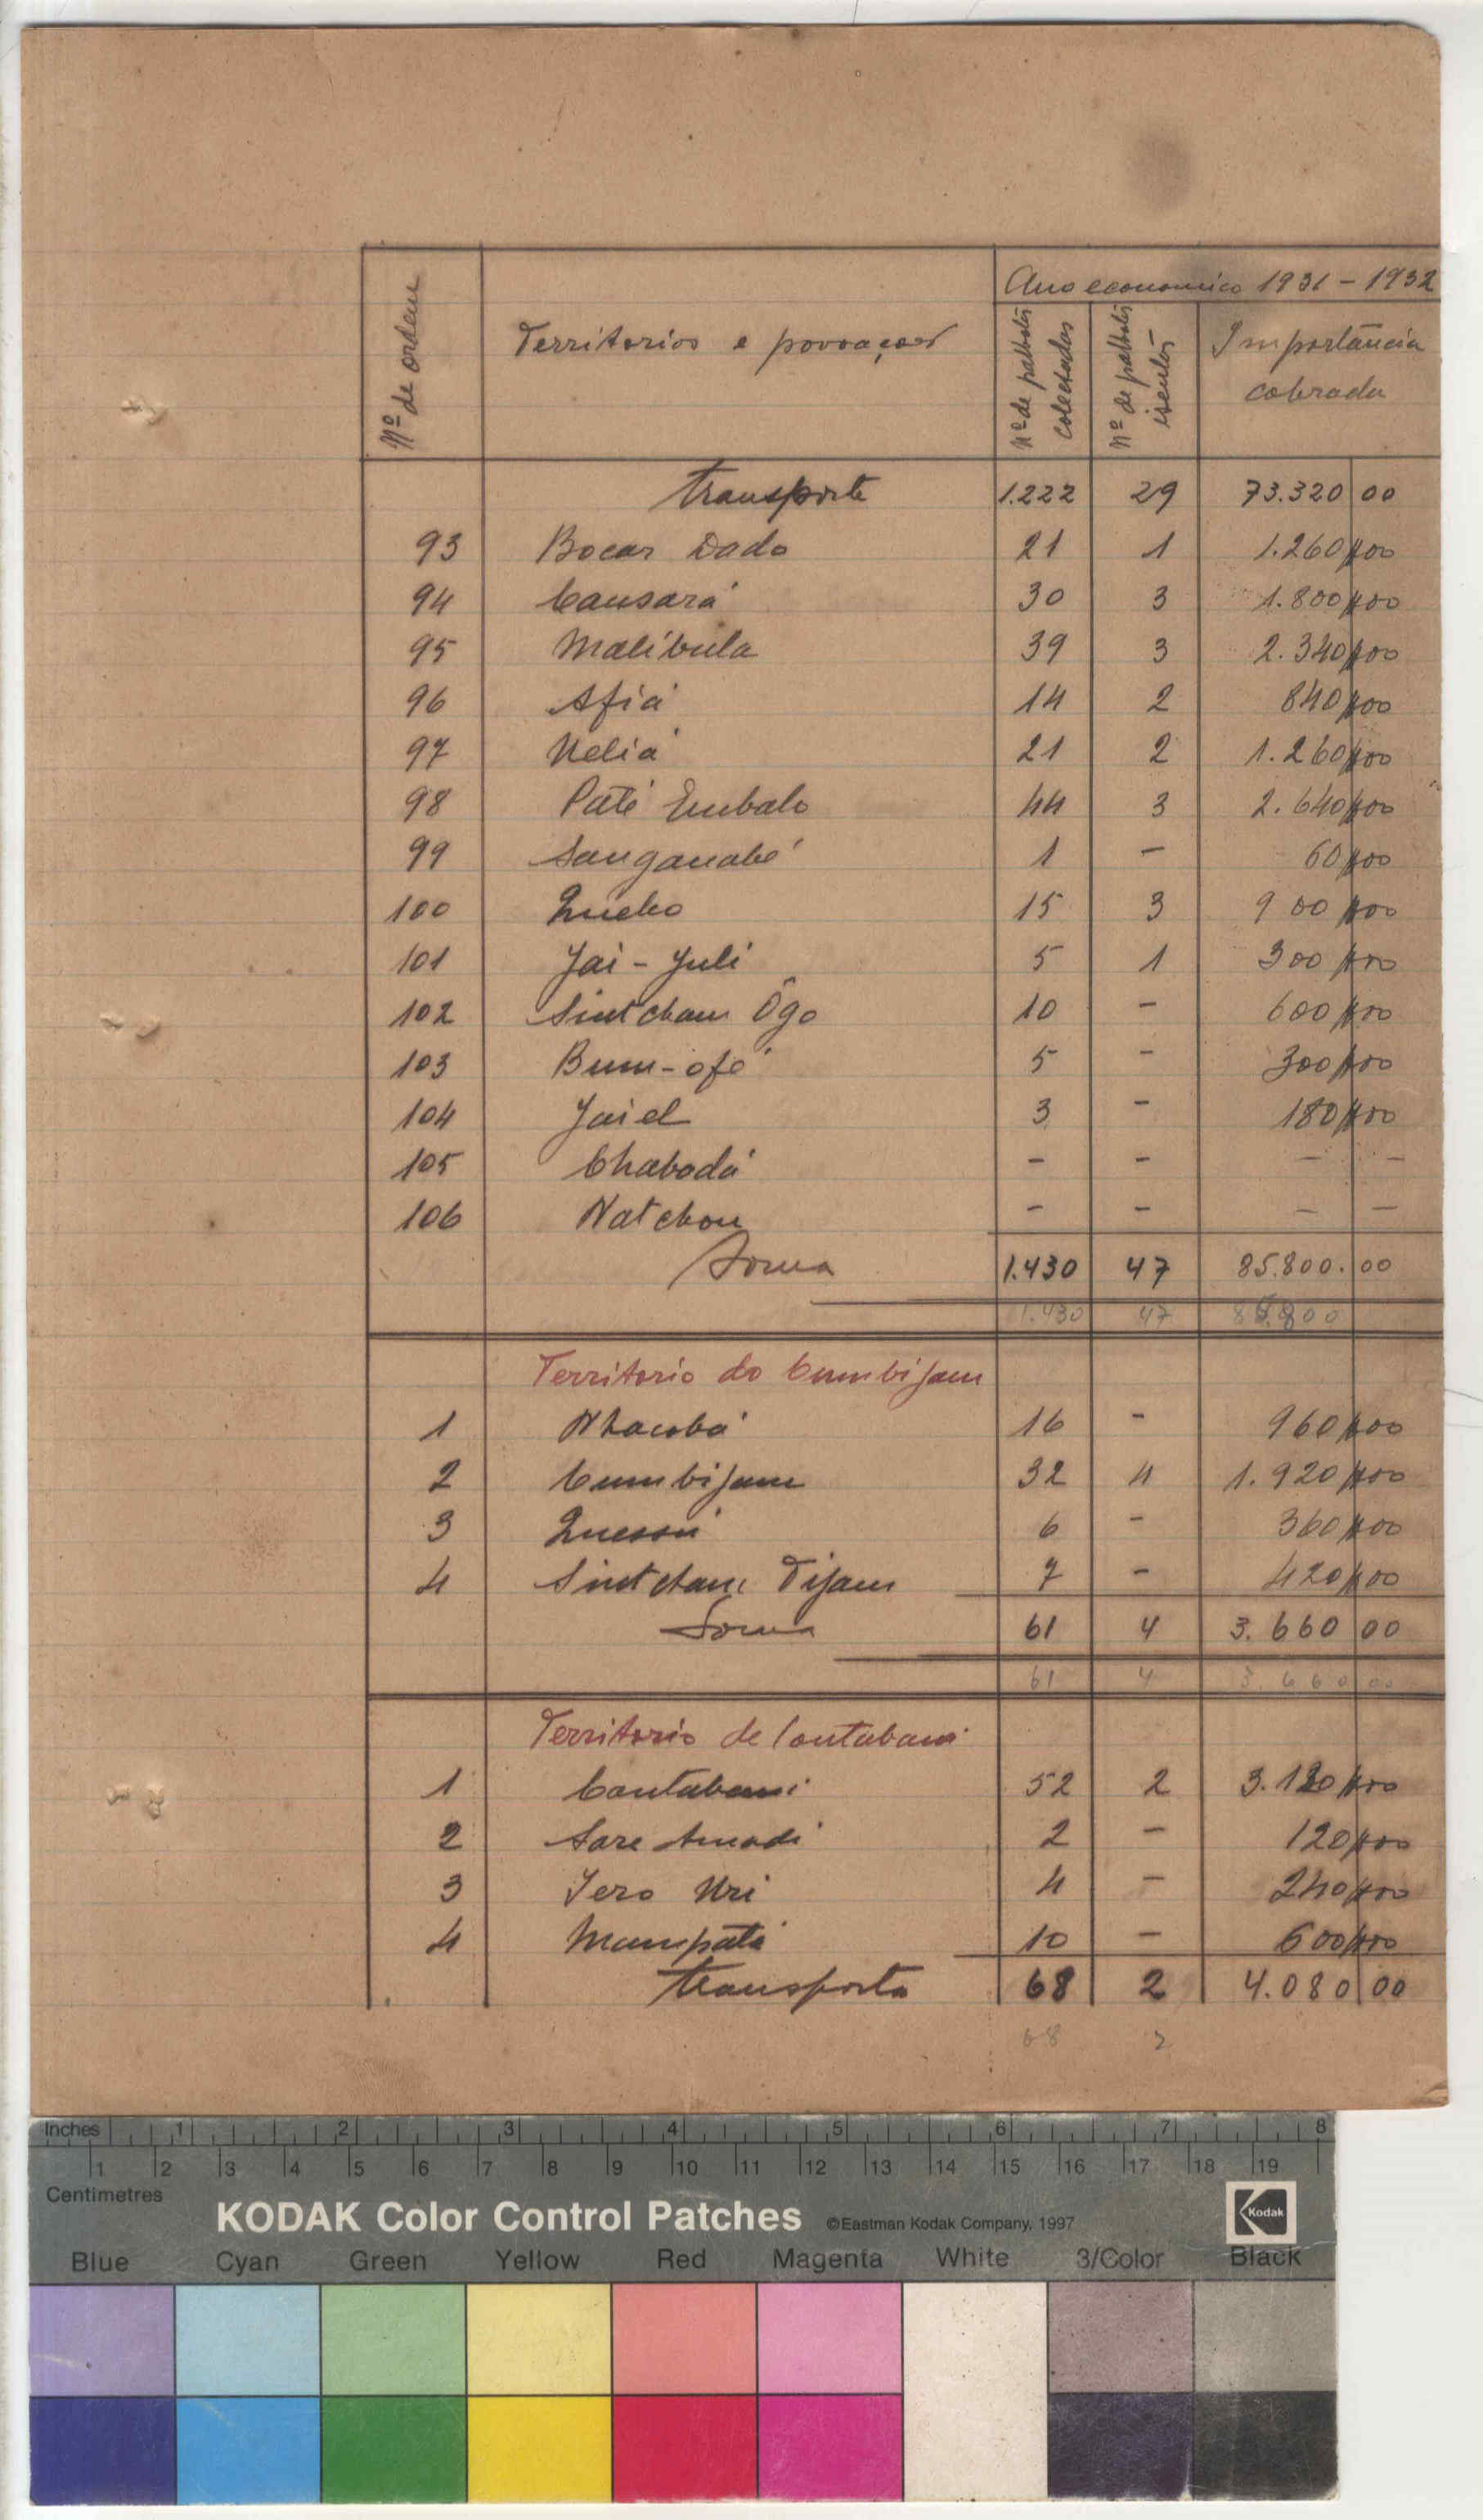 Ano economico 1931 - 1932
Nº de ordem
Territorios e povoações
Nº de palhotas colectadas
Nº de palhotas isentas
Importância cobrada
Transporte 1.222 29 73.320 00
93 Bocar Dado 21 1 1.260$00
94 Cansará 30 3 1.800$00
95 Malibula 39 3 2.340$00
96 Afiá 14 2 840$00
97 Uéliá 21 2 1.260$00
98 Paté Embalo 44 3 2.640$00
99 Sanganabé 1 - 60$00
100 Quebo 15 3 900$00
101 Jai-Juli 5 1 300$00
102 Sintcham Ôgo 10 - 600$00
103 Bum-ofé 5 - 300$00
104 Jaiel 3 - 180$00
105 Chabodá - - - -
106 Natchon - - - -
Soma 1.430 47 85.800.00
1.430 47 85.800
Territorio do Cumbijam
1 Nhacobá 16 - 960$00
2 Cumbijam 32 4 1.920$00
3 Quessui 6 - 360$00
4 Sintcham Tijam 7 - 420$00
Soma 61 4 3.660 00
61 4 3.660 00
Territorio de Contabani
1 Contabani 52 2 3.120$00
2 Sare Amadi 2 - 120$00
3 Iero Uri 4 - 240$00
4 Mampatá 10 - 600$00
Transporta 68 2 4.080 00
68 2
Inches 1 2 3 4 5 6 7 8
1 2 3 4 5 6 7 8 9 10 11 12 13 14 15 16 17 18 19
Centimetres
KODAK Color Control Patches ©Eastman Kodak Company, 1997 Kodak
Blue Cyan Green Yellow Red Magenta White 3/Color Black